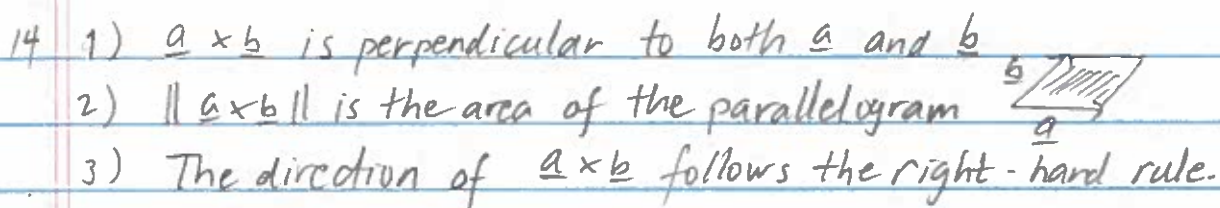 14 1) a × b is perpendicular to both a and b
2) || a × b || is the area of the parallelogram b a
3) The direction of a × b follows the right-hand rule.